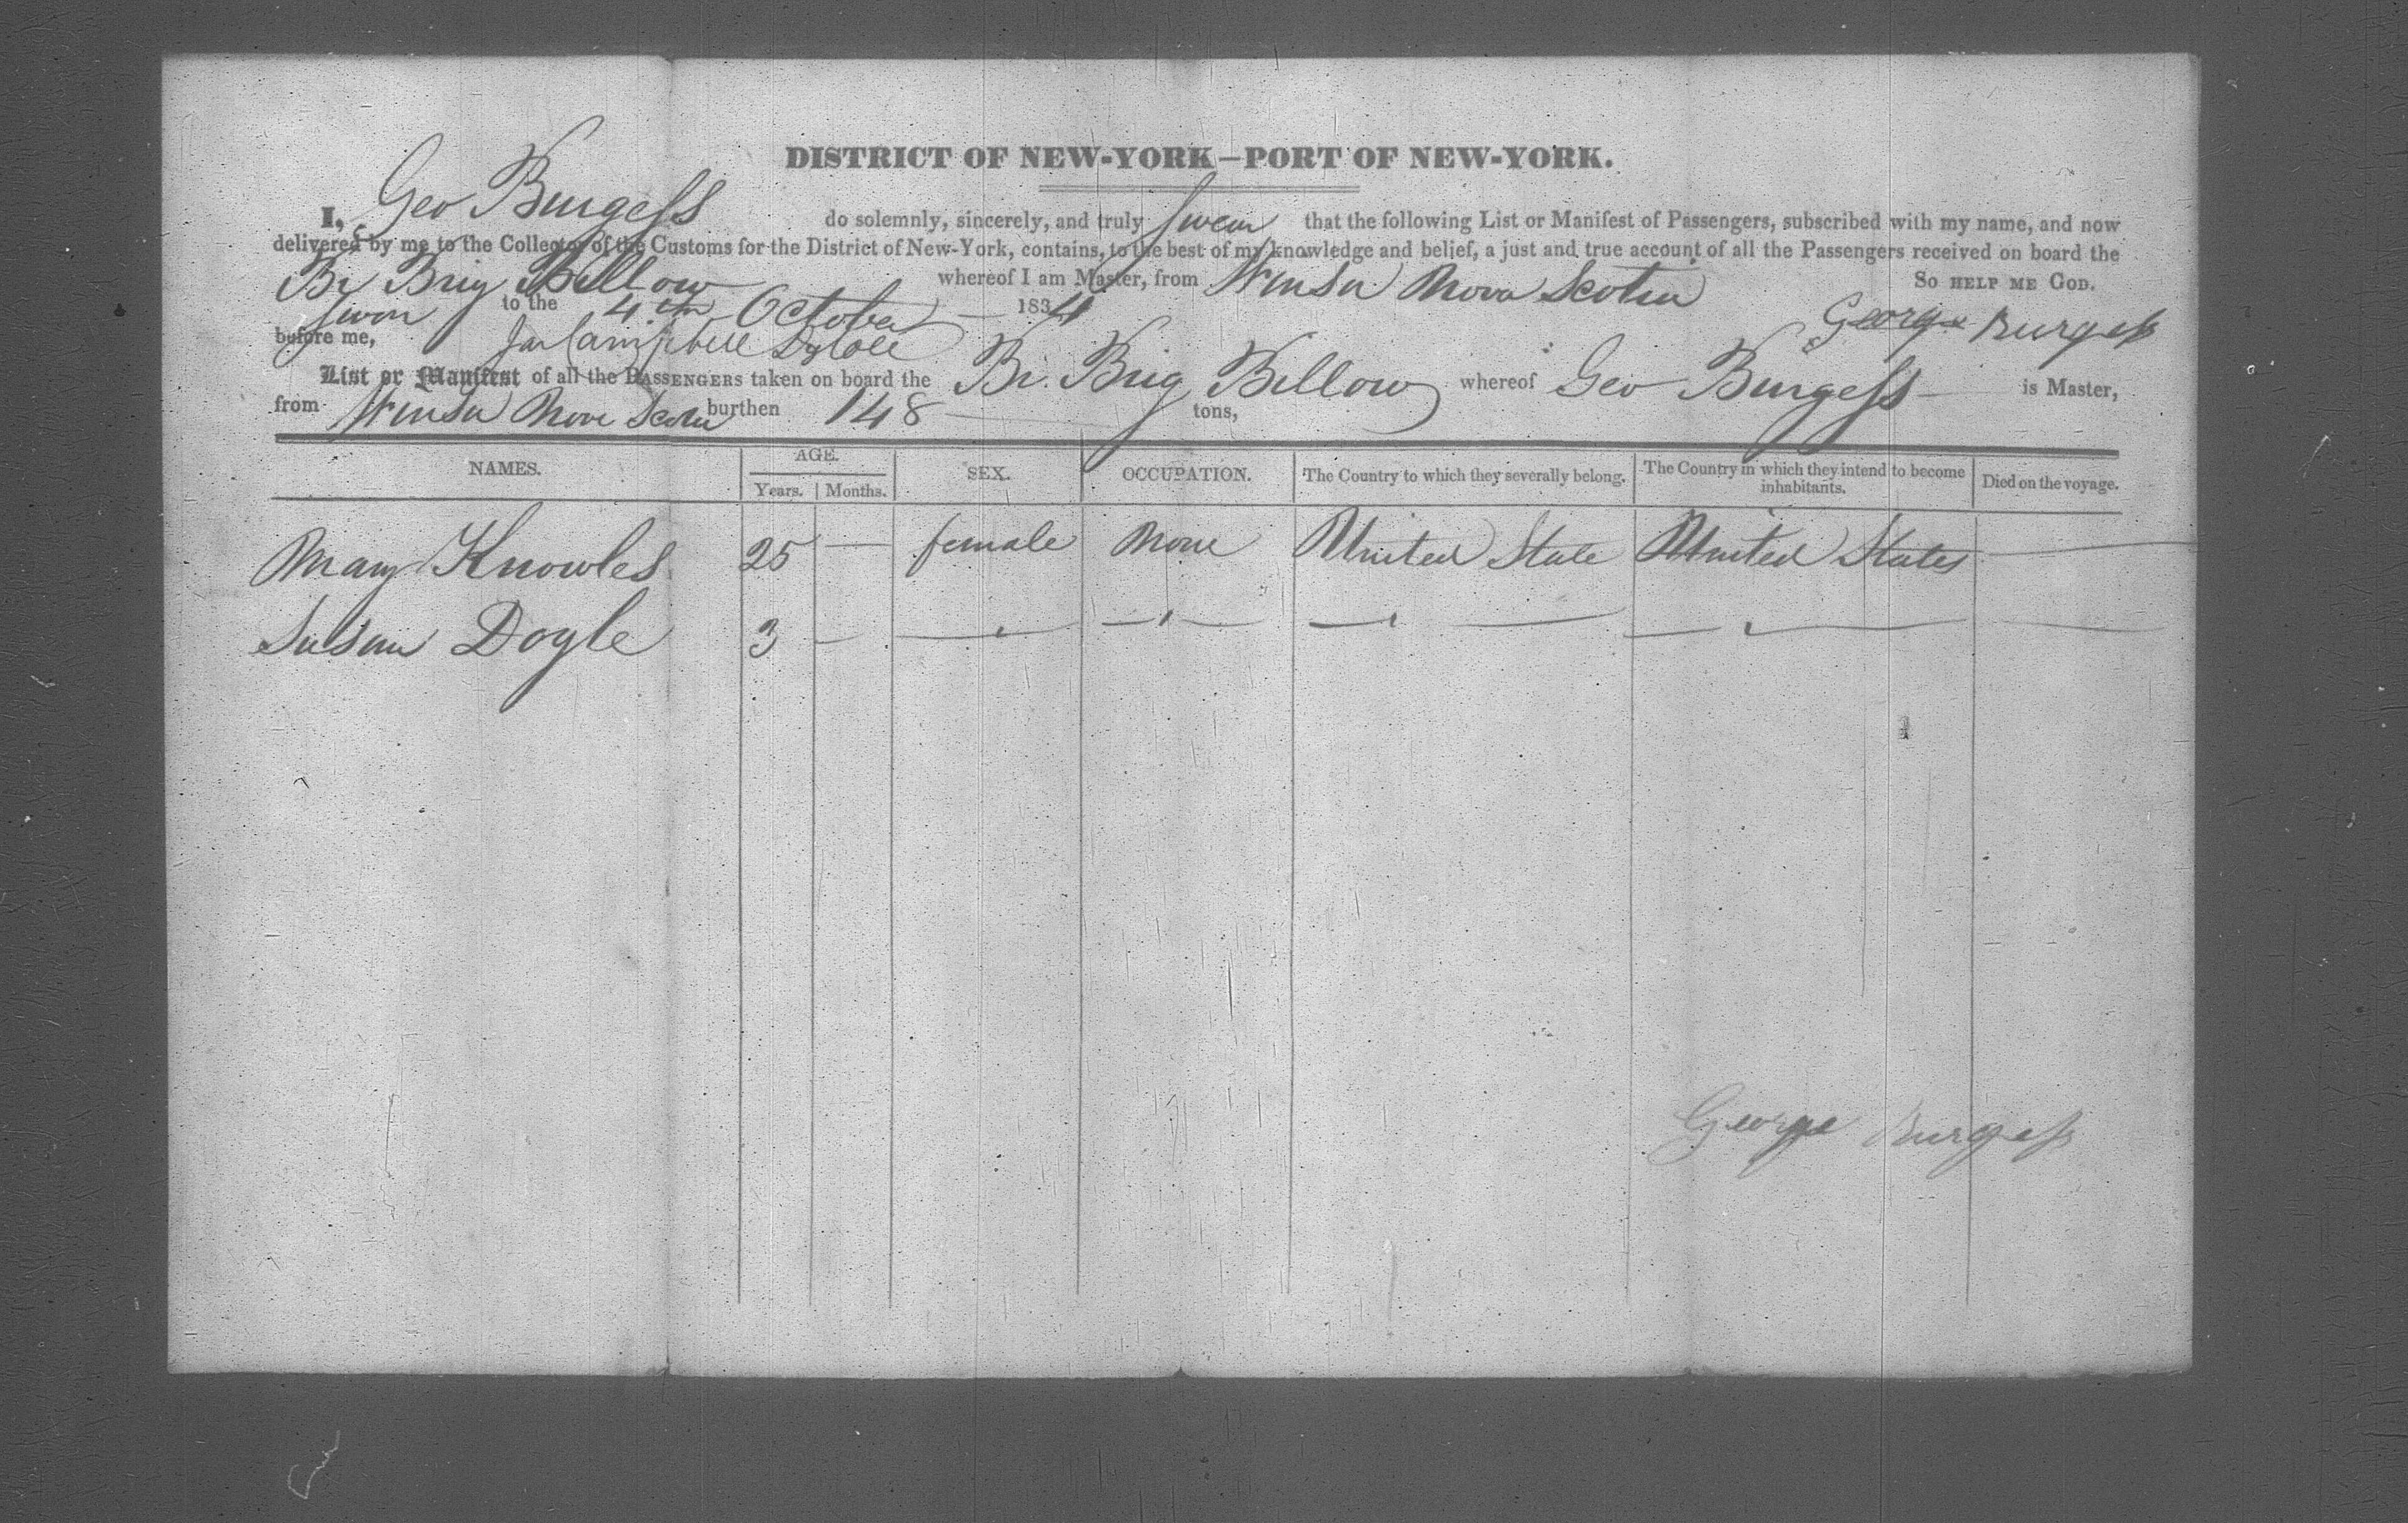 DISTRICT OF NEW-YORK—PORT OF NEW-YORK.
I, Geo Burgess do solemnly, sincerely, and truly swear that the following List or Manifest of Passengers, subscribed with my name, and now
delivered by me to the Collector of the Customs for the District of New-York, contains, to the best of my knowledge and belief, a just and true account of all the Passengers received on board the
Br Brig Billow whereof I am Master, from Winsor Nova Scotia So HELP ME GOD.
Swon to the 4th October 1834 George Burgess
before me, Jas Campbell
List or Manifest of all the PASSENGERS taken on board the Br. Brig Billow whereof Geo Burgess is Master,
from Winsor Nova Scotia burthen 148 tons,
NAMES. AGE. SEX. OCCUPATION. The Country to which they severally belong. The Country in which they intend to become inhabitants. Died on the voyage.
Years. Months.
Mary Knowles 25 — female None United State United States —
Susan Doyle 3 — — " — — " — — " — — " — —
George Burgess